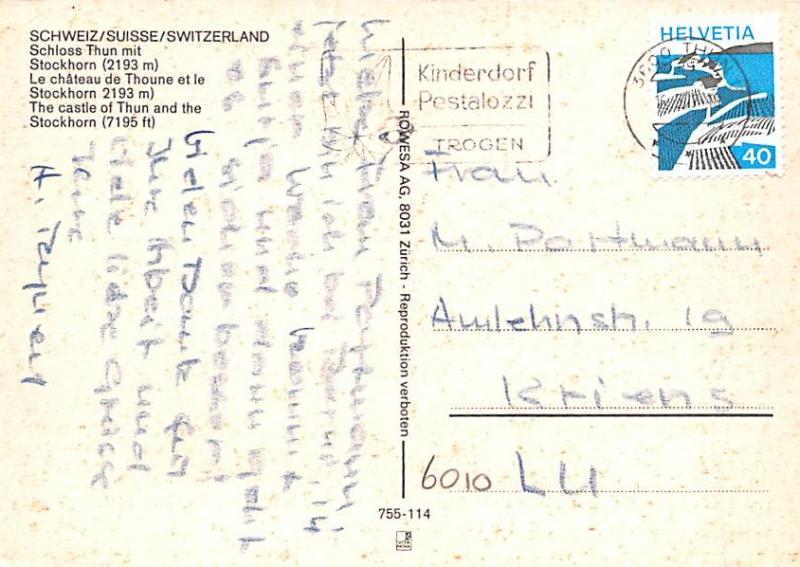 SCHWEIZ/SUISSE/SWITZERLAND
Schloss Thun mit
Stockhorn (2193 m)
Le château de Thoune et le
Stockhorn 2193 m)
The castle of Thun and the
Stockhorn (7195 ft)
HELVETIA
40
3600 THUN
Kinderdorf
Pestalozzi
TROGEN
Frau
M. Portmann
Amlehnstr. 19
Kriens
6010 LU
ROWESA AG, 8031 Zürich - Reproduktion verboten
755-114
Frau Portmann!
jetzt bin ich bei
Woche kommt
und dann geht
Vielen Dank für
Ihre Arbeit und
viele liebe Grüsse
Ihre
H.